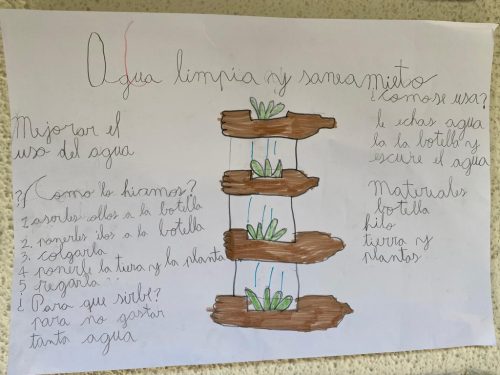 Agua limpia y saneamieto
Mejorar el
uso del agua
¿Como lo hicimos?
2. ponerles ilos a la botella
3. colgarla
4 ponerle la tiera y la planta
5 regarla
¿Para que sirbe?
para no gastar
tanta agua
¿Como se usa?
le echas agua
la la botella y
escure el agua
Materiales
botella
hilo
tierra y
plantas